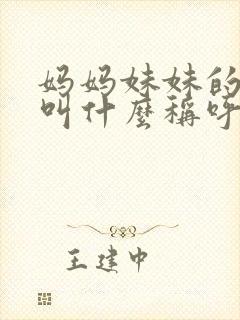 妈妈妹妹的
叫什麼稱呼
王建中